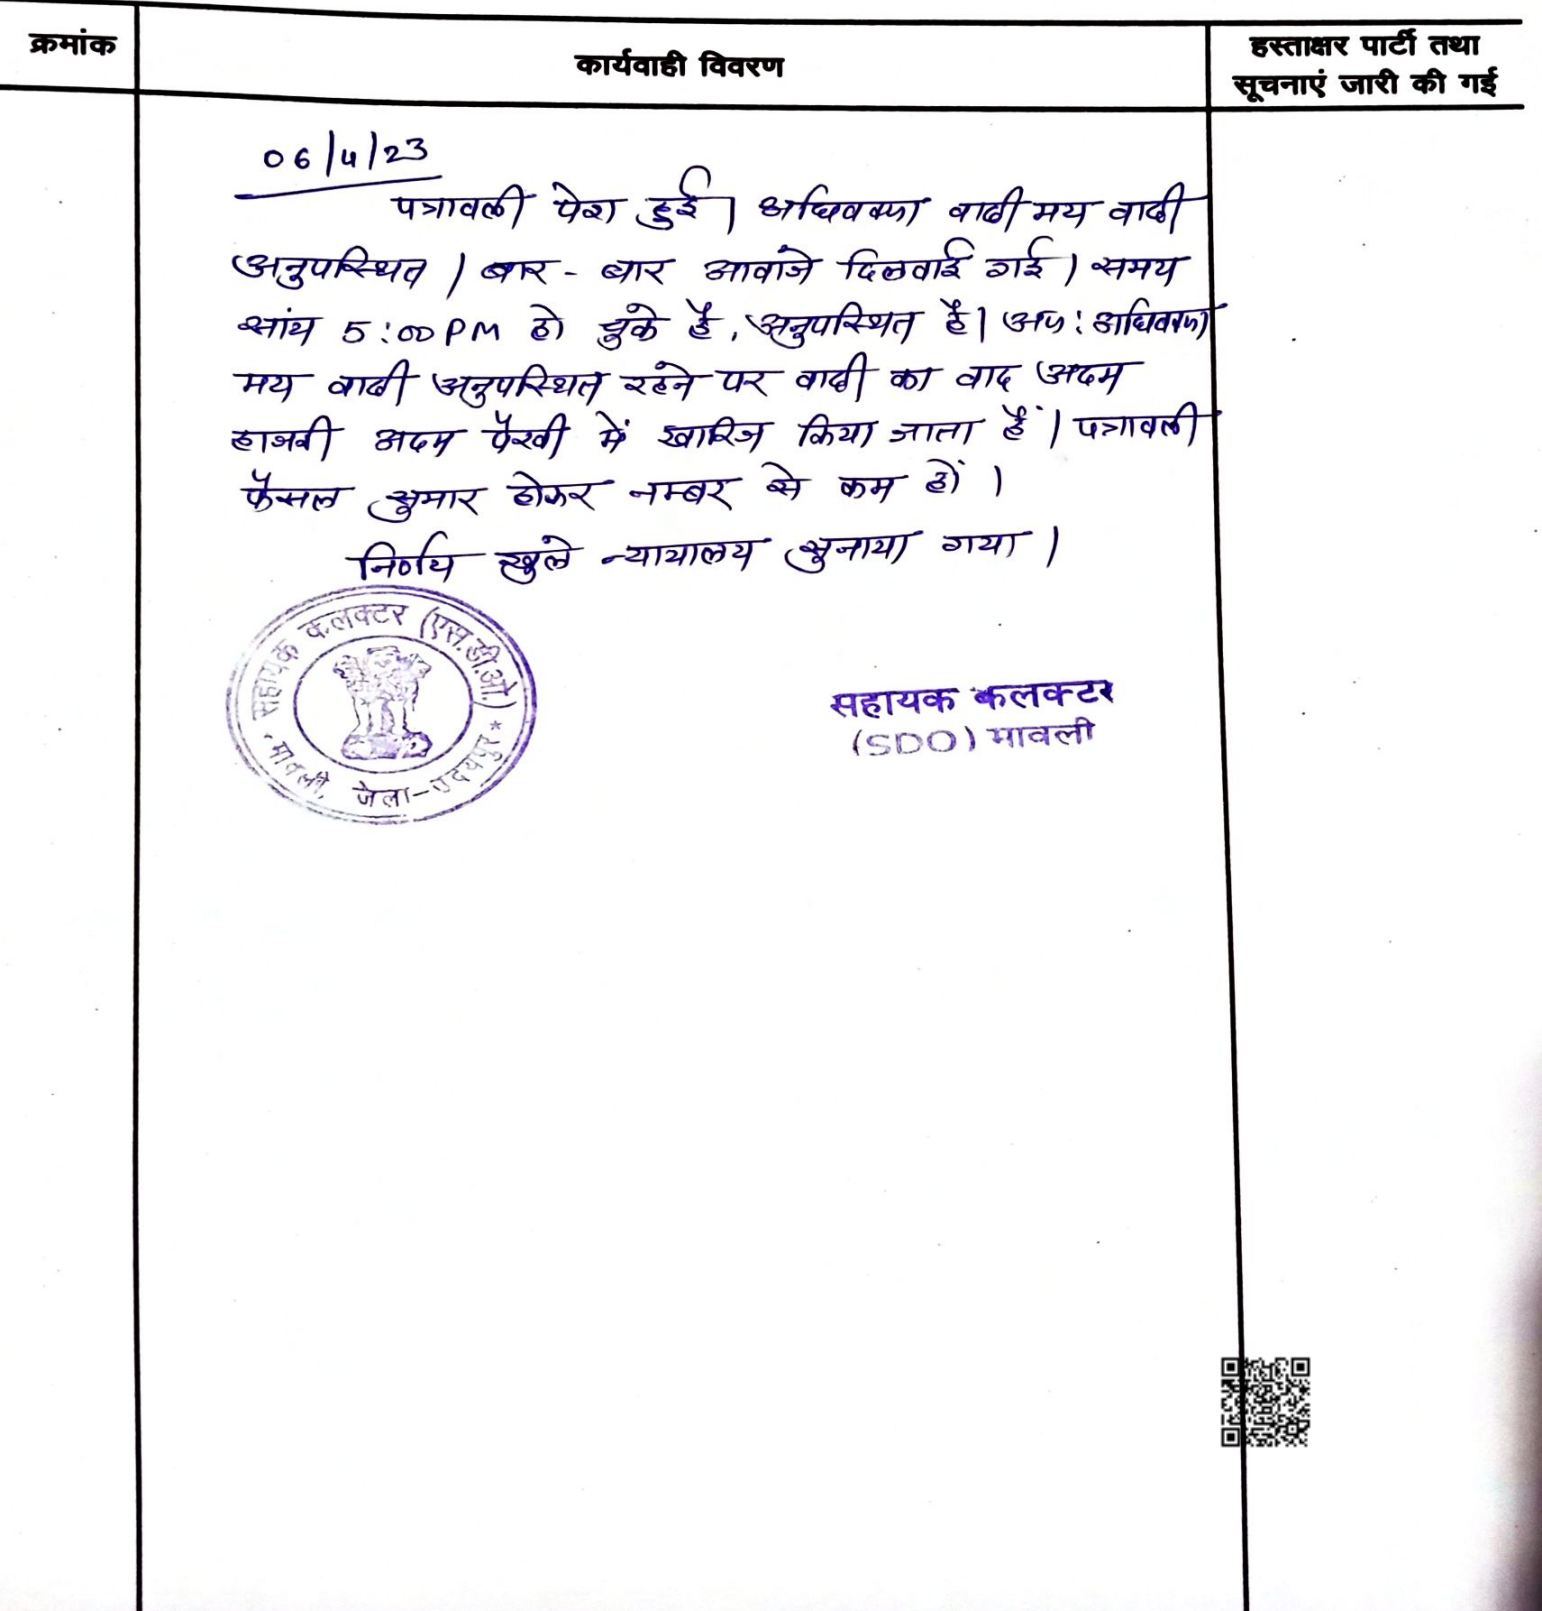 क्रमांक
कार्यवाही विवरण
हस्ताक्षर पार्टी तथा
सूचनाएं जारी की गई
06/4/23
पत्रावली पेश हुई। अधिवक्ता वादी मय वादी
अनुपस्थित। बार-बार आवाजे दिलवाई गई। समय
सांय 5:00 PM हो चुके है, अनुपस्थित है। अतः अधिवक्ता
मय वादी अनुपस्थित रहने पर वादी का वाद अदम
हाजरी अदम पैरवी में खारिज किया जाता हैं। पत्रावली
फैसल शुमार होकर नम्बर से कम हों।
निर्णय खुले न्यायालय सुनाया गया।
सहायक कलक्टर (एस.डी.ओ.)
मावली, जिला-उदयपुर *
सहायक कलक्टर
(SDO) मावली